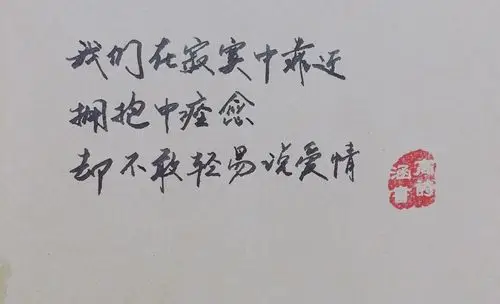 我们在寂寞中靠近
拥抱中痊愈
却不敢轻易说爱情